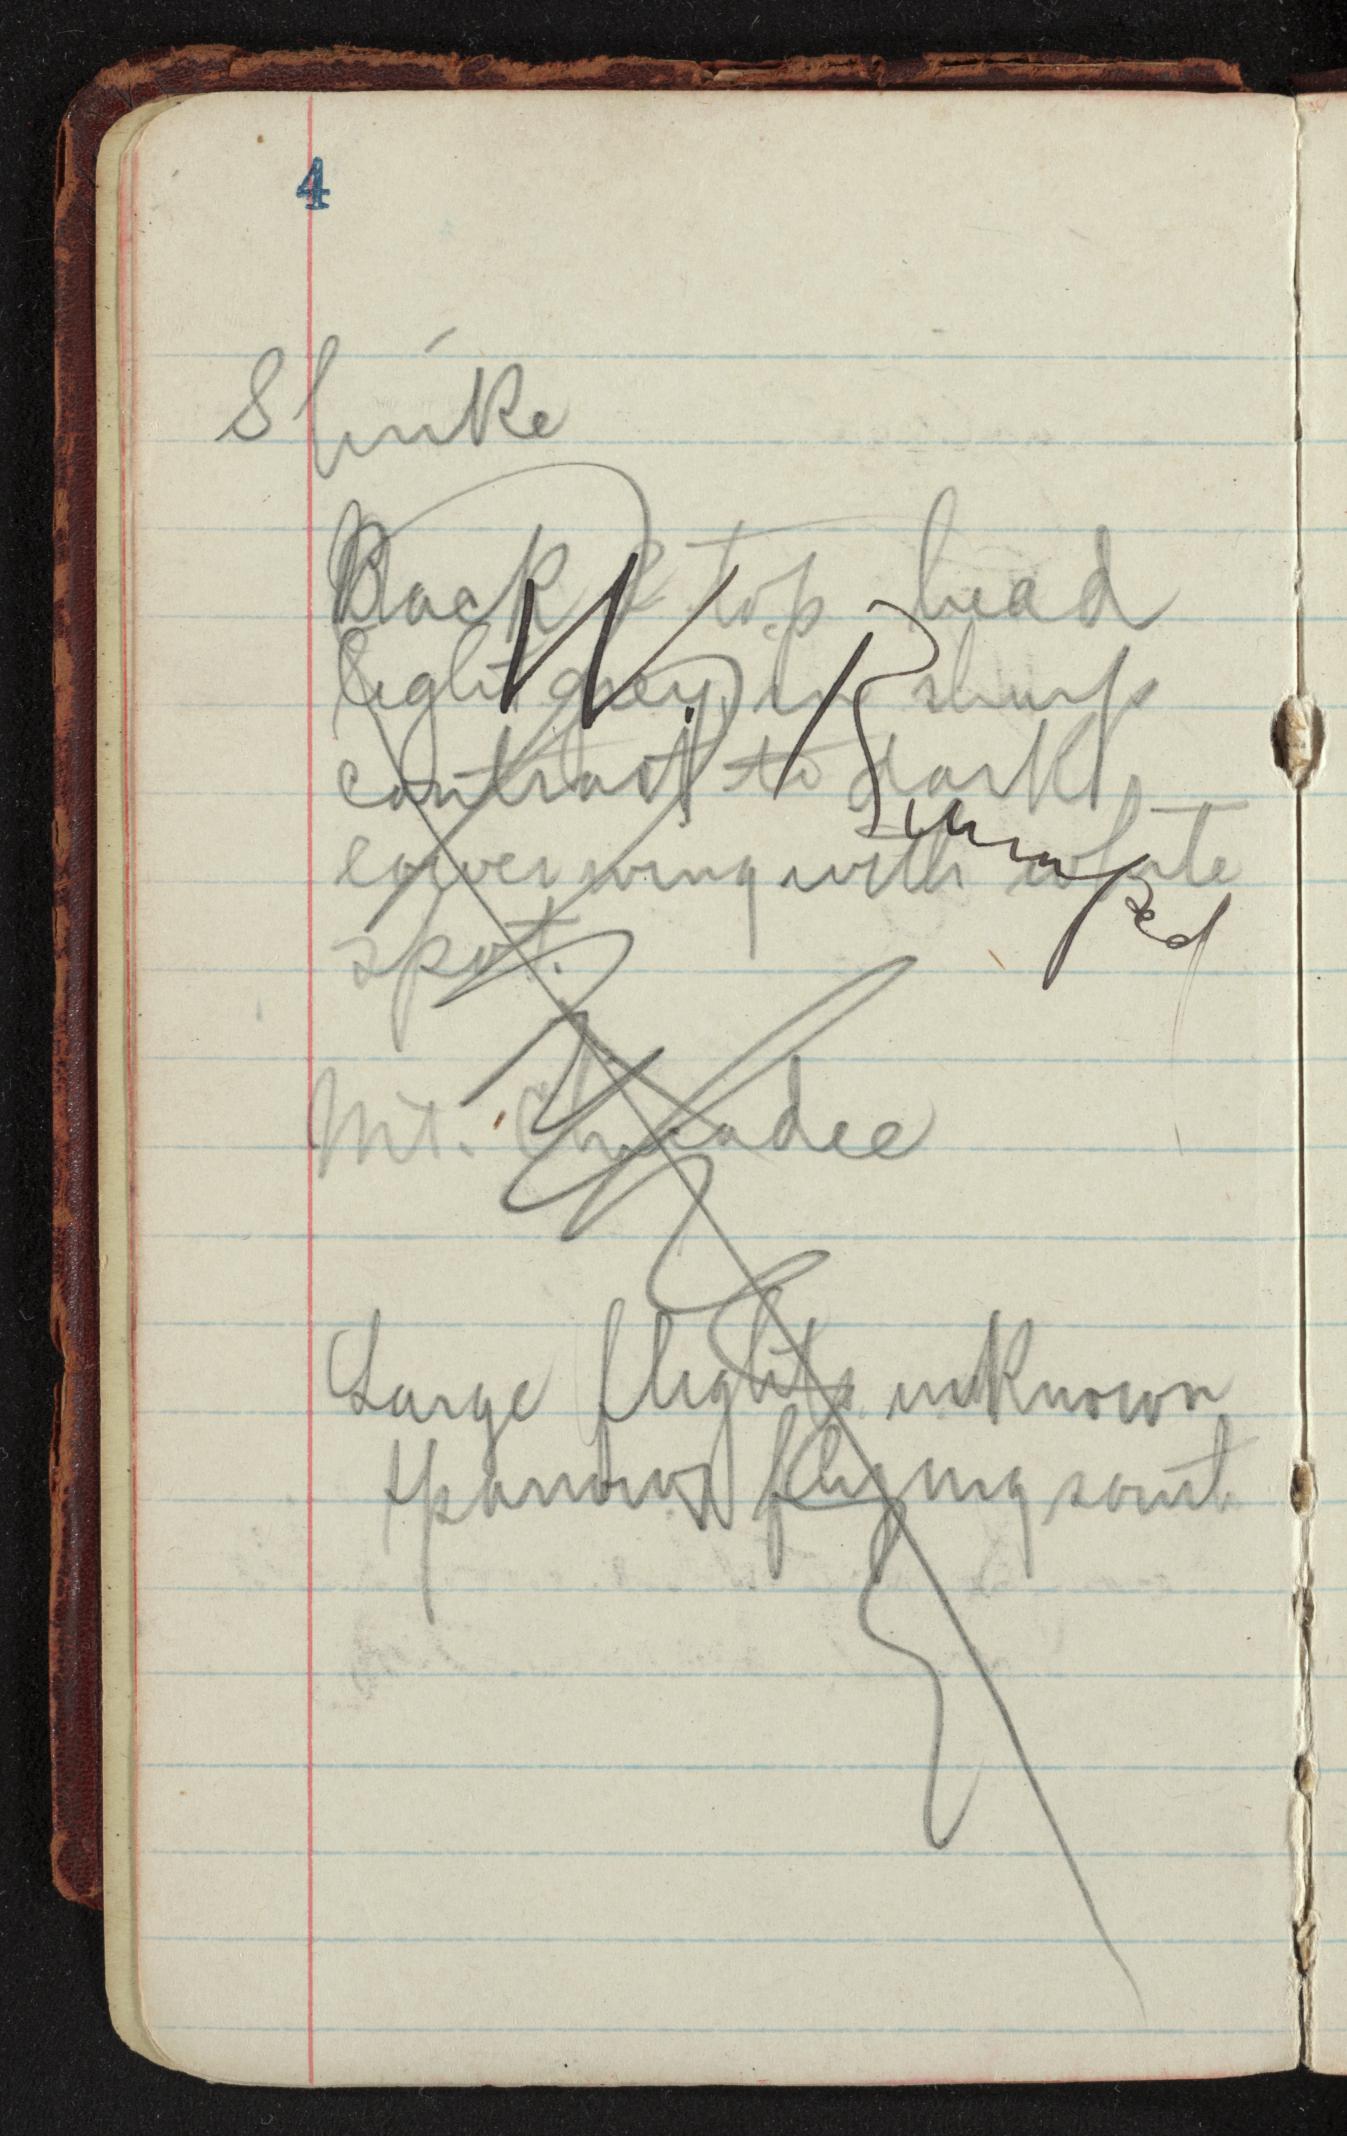 4
Shrike
Back & top head
light grey in sharp
contrast to dark
lower wing with white
spot.
W. Rumped
Mt. Chicadee
Large flights unknown
sparrows flying south